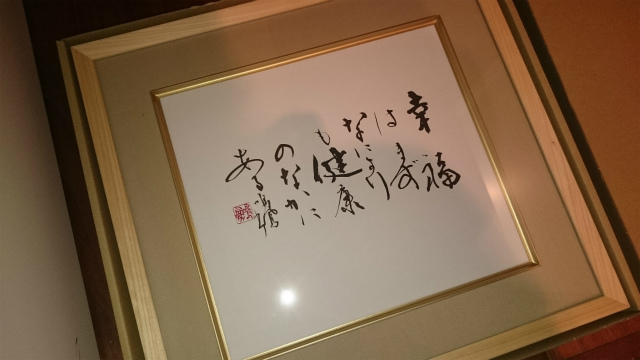 幸福
はまず
なにより
も健康
のなかに
ある